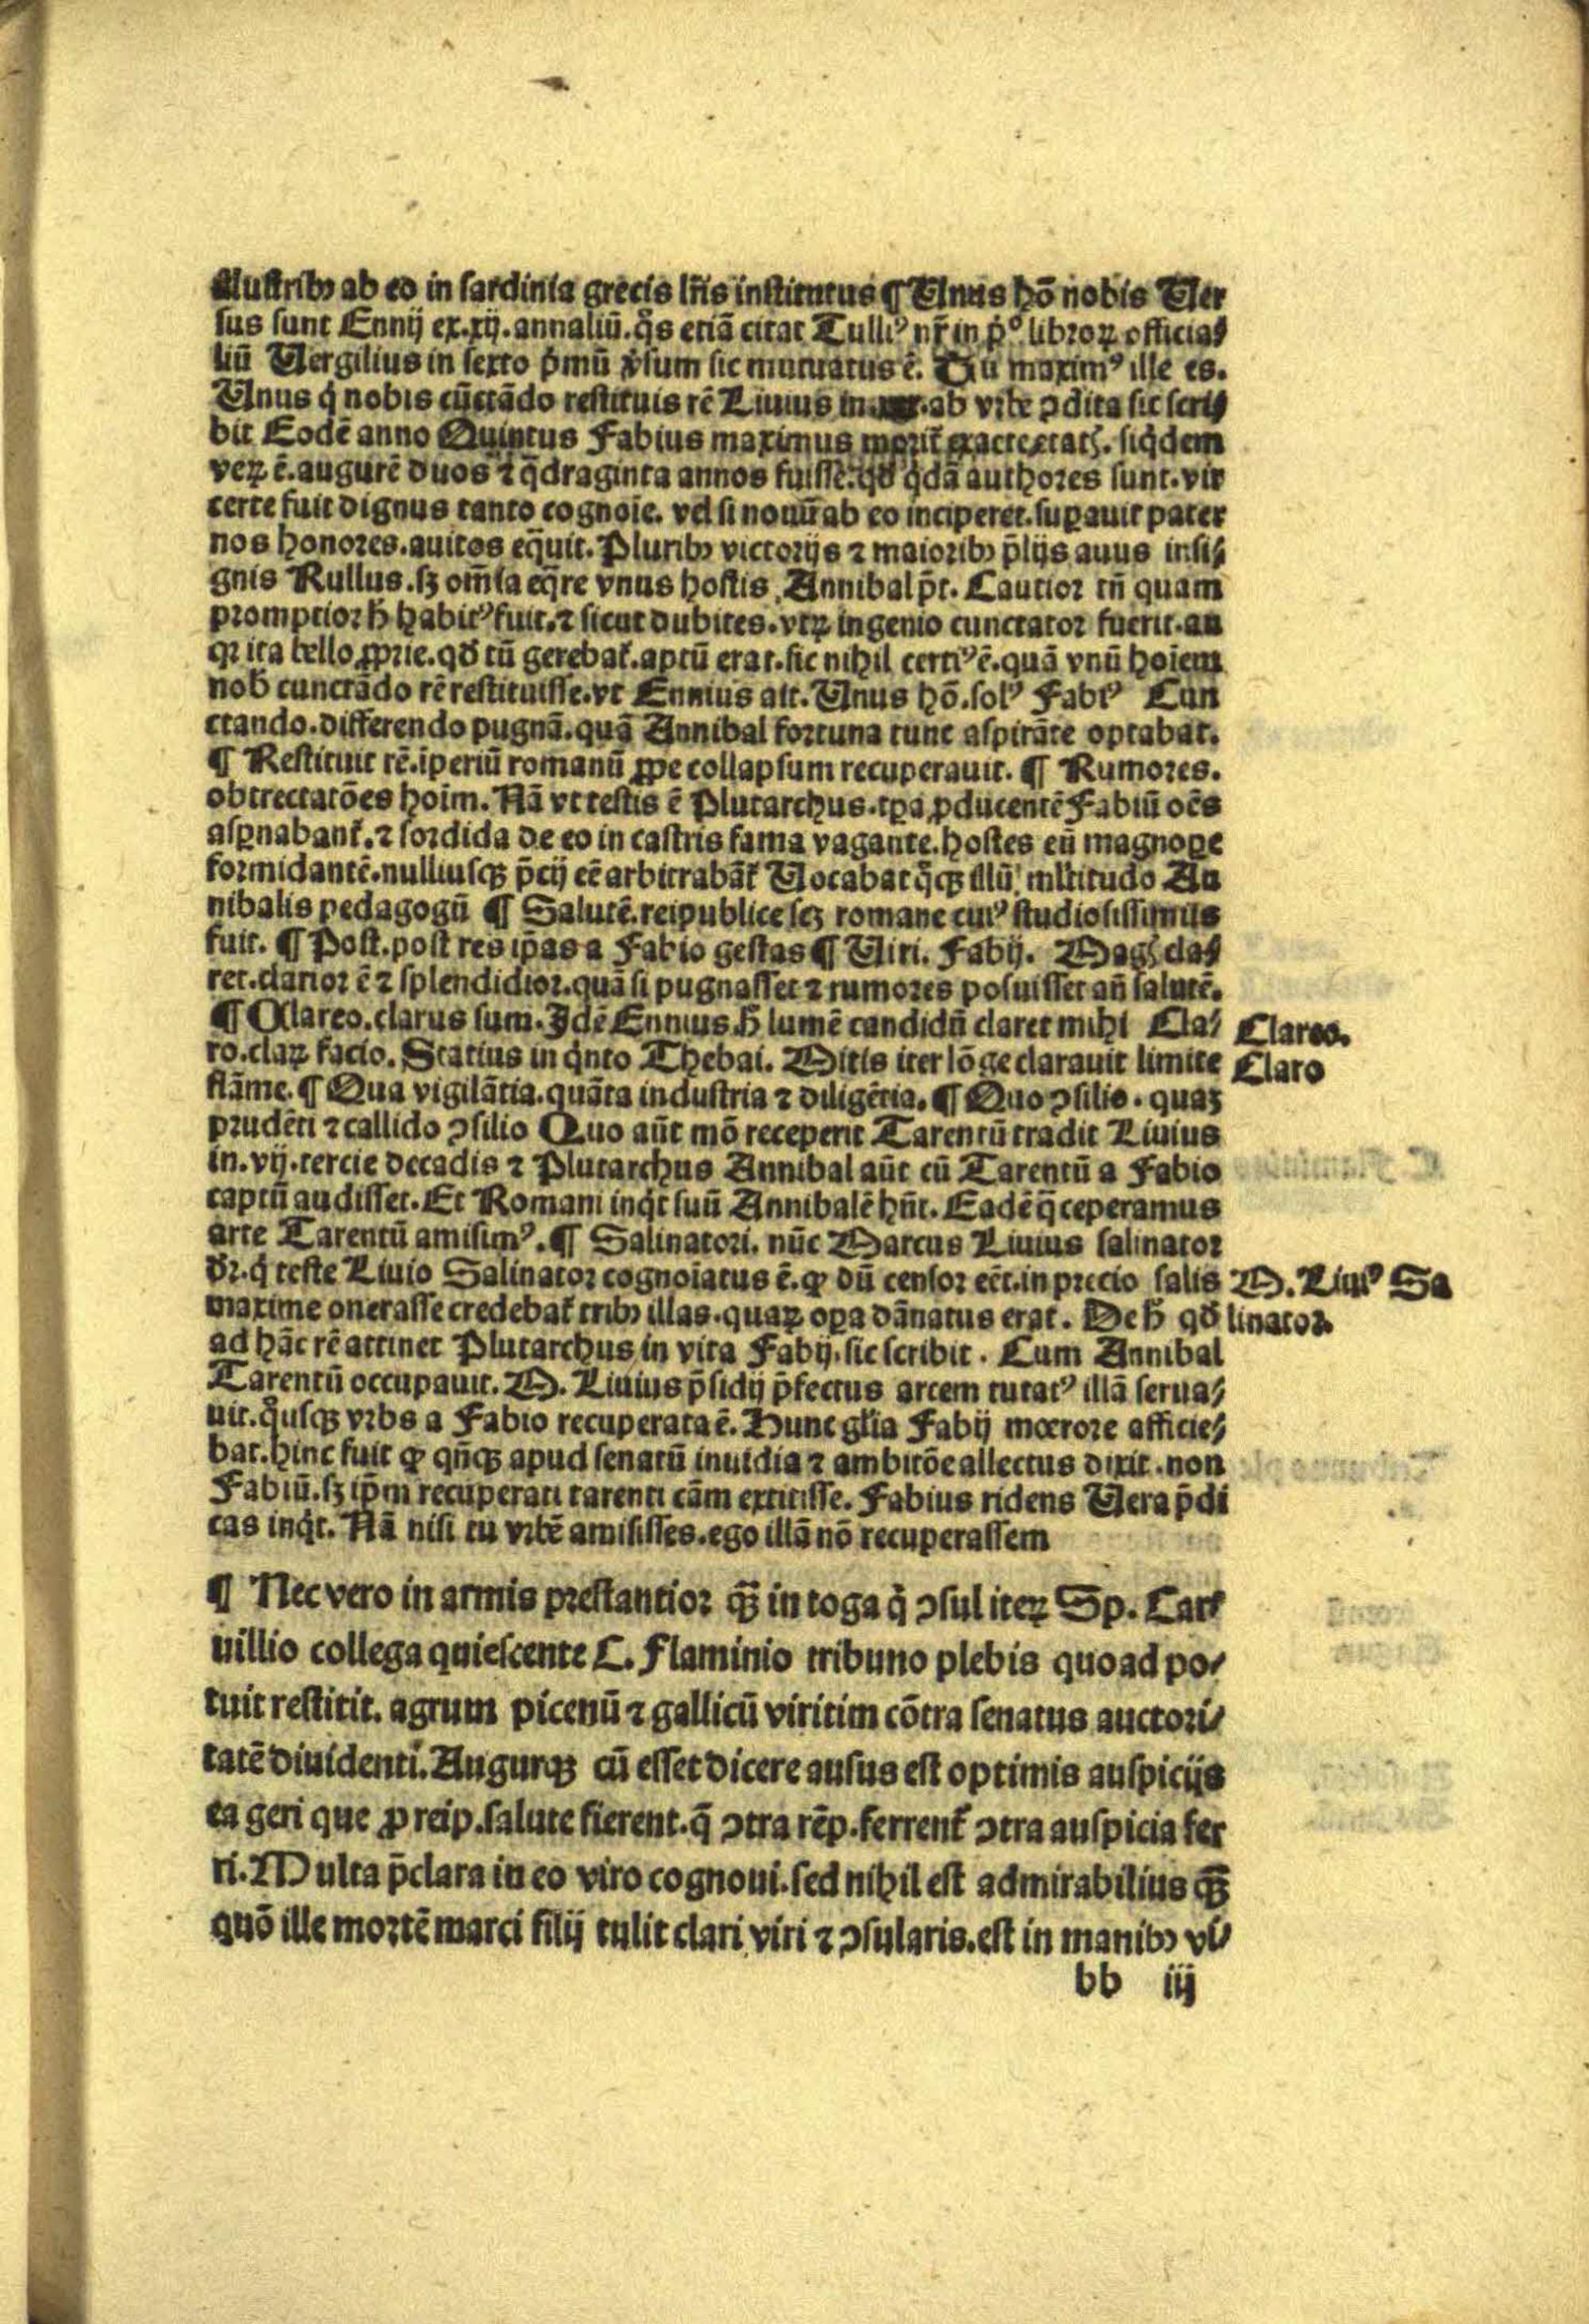 illustribꝰ ab eo in sardinia grecis lr̃is institutus ¶ Unus hõ nobis Ver
sus sunt Ennij ex.xij.annaliũ.q̃s etiã citat Tulliꝰ nr̃ in p̊ꝰ.libroꝝ officia/
liũ Vergilius in sexto p̃mũ v̓sum sic mutuatus ẽ. Tu maximꝰ ille es.
Unus q̓ nobis cũctãdo restituis rẽ Liuius in .ab vrbe ꝯdita sic scri/
bit Eodẽ anno Quintus Fabius maximus morit̃ exacte etatꝭ. siq̓dem
veꝝ ẽ.augurẽ duos ⁊ q̃draginta annos fuisse.qđ q̓dã authores sunt.vir
certe fuit dignus tanto cognoĩe. vel si nouũ ab eo inciperet.suꝑauit pater
nos honores.auitos eq̃uit.Pluribꝰ victorijs ⁊ maioribꝰ p̃lijs auus insi/
gnis Rullus.sꝫ om̃ia eq̃re vnus hostis Annibal pt̃. Cautior tñ quam
promptior ħ habitꝰ fuit.⁊ sicut dubites.vtꝝ ingenio cunctator fuerit.an
qꝛ ita bello ꝓprie.qđ tũ gerebat̃.aptũ erat.sic nihil certiꝰ ẽ.quã vnũ hoĩem
nob̃ cunctãdo rẽ restituisse.vt Ennius ait.Unus hõ.solꝰ Fabiꝰ Cun
ctando.differendo pugnã.quã Annibal fortuna tunc aspirãte optabat.
¶ Restituit rẽ.iperiũ romanũ ꝓpe collapsum recuperauit. ¶ Rumores.
obtrectatões hoĩm. Nã vt testis ẽ Plutarchus.tꝑa ꝓducentẽ Fabiũ oẽs
asꝑnabant̃.⁊ sordida de eo in castris fama vagante.hostes eũ magnoꝑe
formidantẽ.nulliusqꝫ p̃cij eẽ arbitrabãt̃ Vocabat q̊qꝫ illũ ml̃titudo An
nibalis pedagogũ ¶ Salutẽ.reipublice scꝫ romane cuiꝰ studiosissimus
fuit. ¶ Post.post res ip̃as a Fabio gestas ¶ Viri. Fabij. Magꝭ cla/
ret.clarior ẽ ⁊ splendidior.quã si pugnasset ⁊ rumores posuisset añ salutẽ.
¶ Clareo.clarus sum.Idẽ Ennius.ħ lumẽ candidũ claret mihi Cla/
ro.claꝝ facio. Statius in q̓nto Thebai. Ditis iter lõge clarauit limite
flãme.¶ Qua vigilãtia.quãta industria ⁊ diligẽtia.¶ Quo ꝯsilio.quaꝫ
prudẽti ⁊ callido ꝯsilio Quo aũt mõ receperit Tarentũ tradit Liuius
in.vij.tercie decadis ⁊ Plutarchus Annibal aũt cũ Tarentũ a Fabio
captũ audisset.Et Romani inq̓t suũ Annibalẽ hñt.Eadẽ q̃ ceperamus
arte Tarentũ amisimꝰ.¶ Salinatori. nũc Marcus Liuius salinator
dr̃.q̓ teste Liuio Salinator cognoĩatus ẽ.ꝙ dũ censor eẽt.in precio salis
maxime onerasse credebat̃ tribꝰ illas.quaꝝ oꝑa dãnatus erat. De ħ qđ
ad hãc rẽ attinet Plutarchus in vita Fabij.sic scribit. Cum Annibal
Tarentũ occupauit. M. Liuius p̃sidij p̃fectus arcem tutatꝰ illã serua/
uit.q̊usqꝫ vrbs a Fabio recuperata ẽ.Hunc gl̃ia Fabij mœrore afficie/
bat.hinc fuit ꝙ qñqꝫ apud senatũ inuidia ⁊ ambitõe allectus dixit.non
Fabiũ.sꝫ ip̃m recuperati tarenti cãm extitisse. Fabius ridens Vera p̃di
cas inq̓t. Nã nisi tu vrbẽ amisisses.ego illã nõ recuperassem
Clareo.
Claro
M. Liuiꝰ Sa
linator.
¶ Nec vero in armis prestantior qꝫ̃ in toga q̓ ꝯsul iteꝝ Sp. Car/
uillio collega quiescente C. Flaminio tribuno plebis quoad po/
tuit restitit. agrum picenũ ⁊ gallicũ viritim cõtra senatus auctori/
tatẽ diuidenti. Augurqꝫ cũ esset dicere ausus est optimis auspicijs
ea geri que ꝓ reip.salute fierent.q̃ ꝯtra rẽp.ferrent̃ ꝯtra auspicia fer
ri. Multa p̃clara in eo viro cognoui.sed nihil est admirabilius qꝫ̃
quõ ille mortẽ marci filij tulit clari viri ⁊ ꝯsularis.est in manibꝰ vi/
bb iij